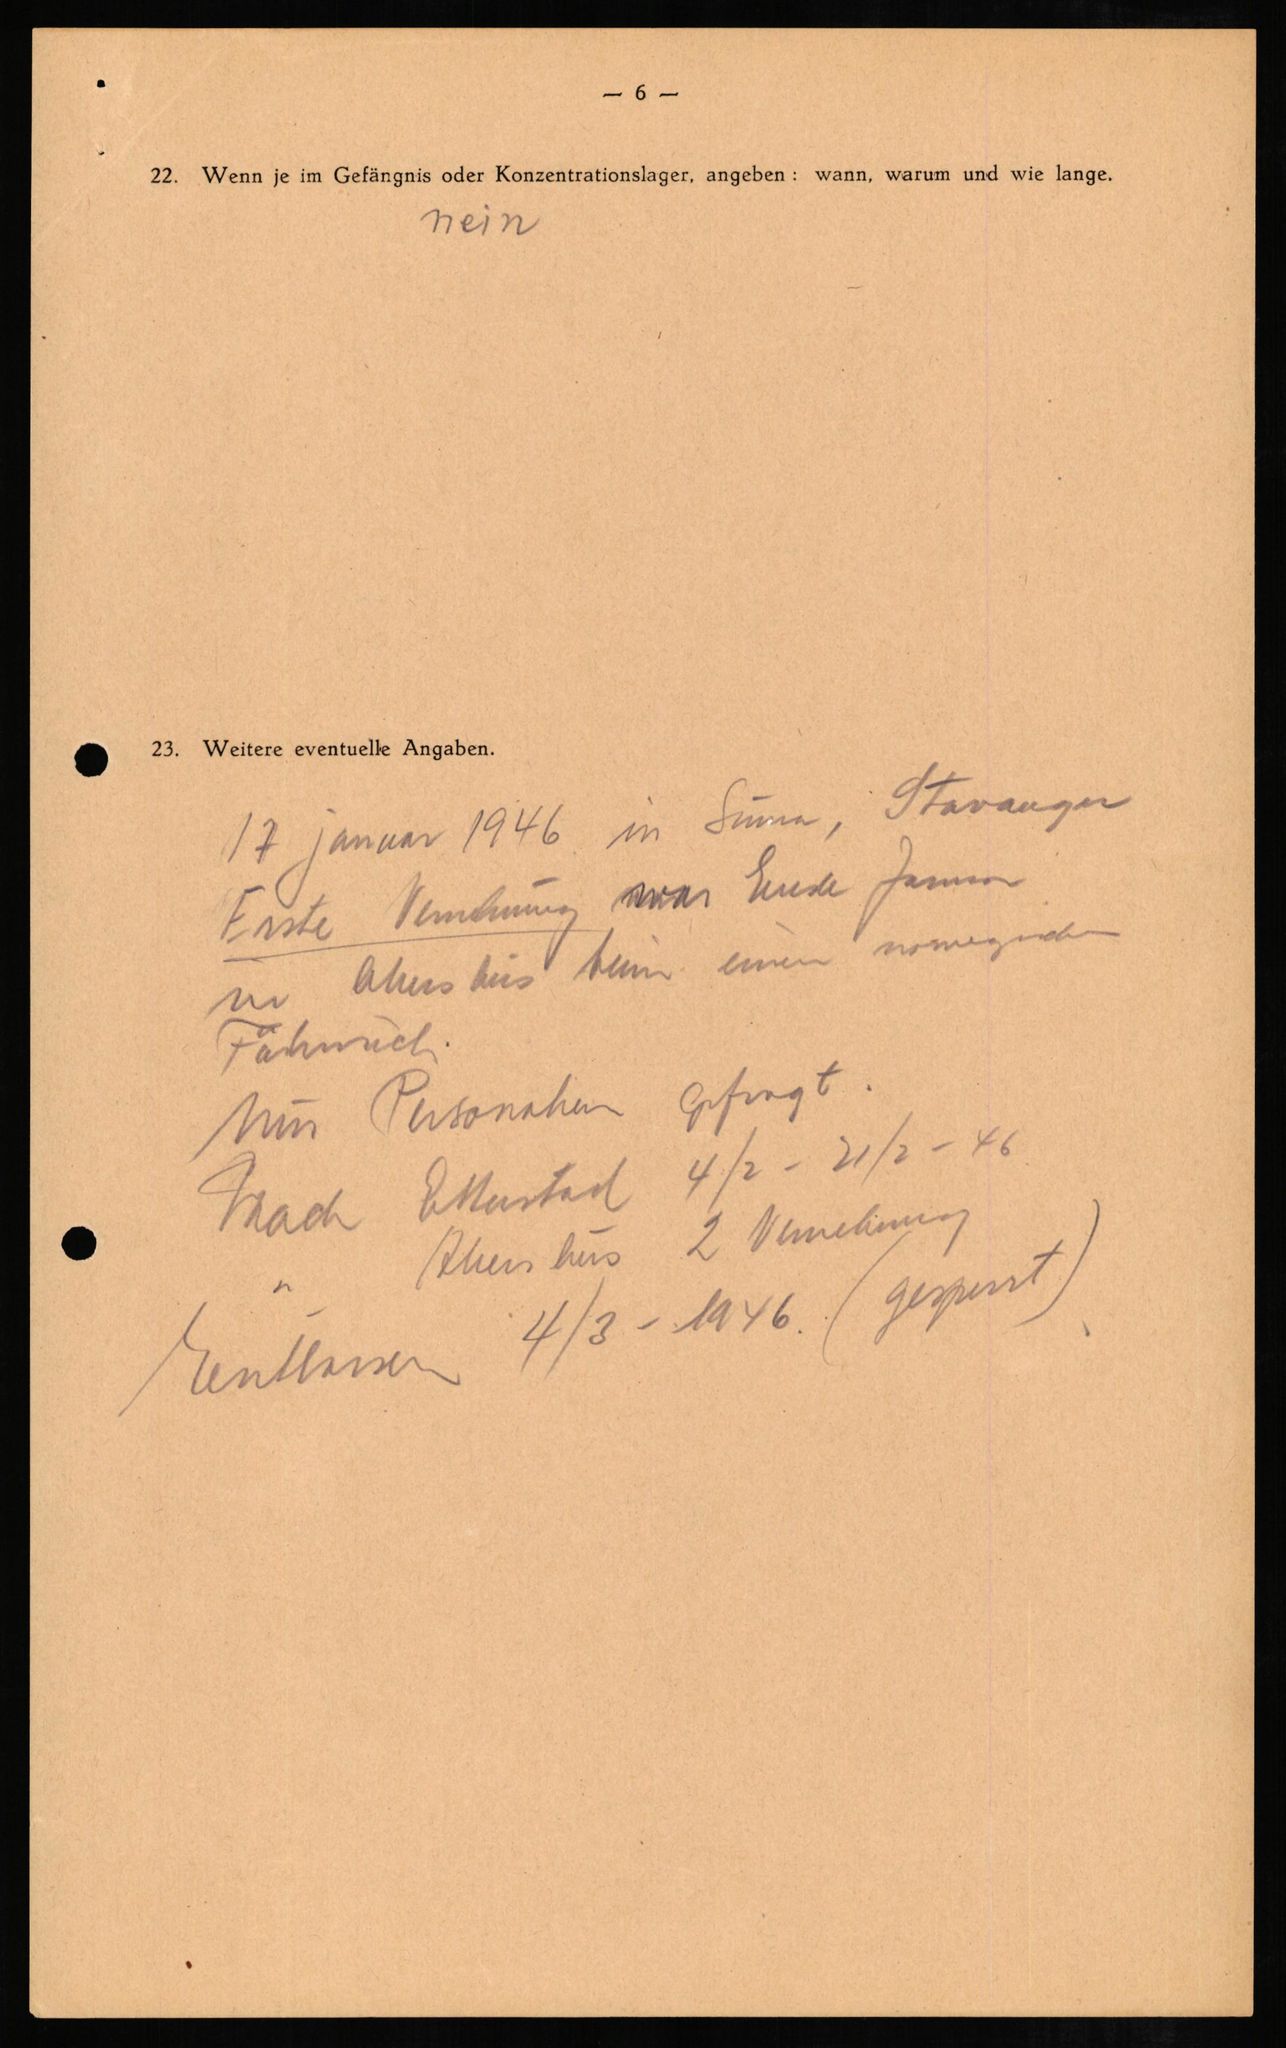 — 6 —
22. Wenn je im Gefängnis oder Konzentrationslager, angeben: wann, warum und wie lange.
nein
23. Weitere eventuelle Angaben.
17 januar 1946 in Stavanger
Erste Vernehmung war Ende Januar
in Akershus beim einen norwegischen
Fähnrich.
Nur Personalien gefragt.
Nach Etterstad 4/2 - 21/2 - 46
" Akershus 2 Vernehmung
Entlassen 4/3 - 1946. (gesperrt)